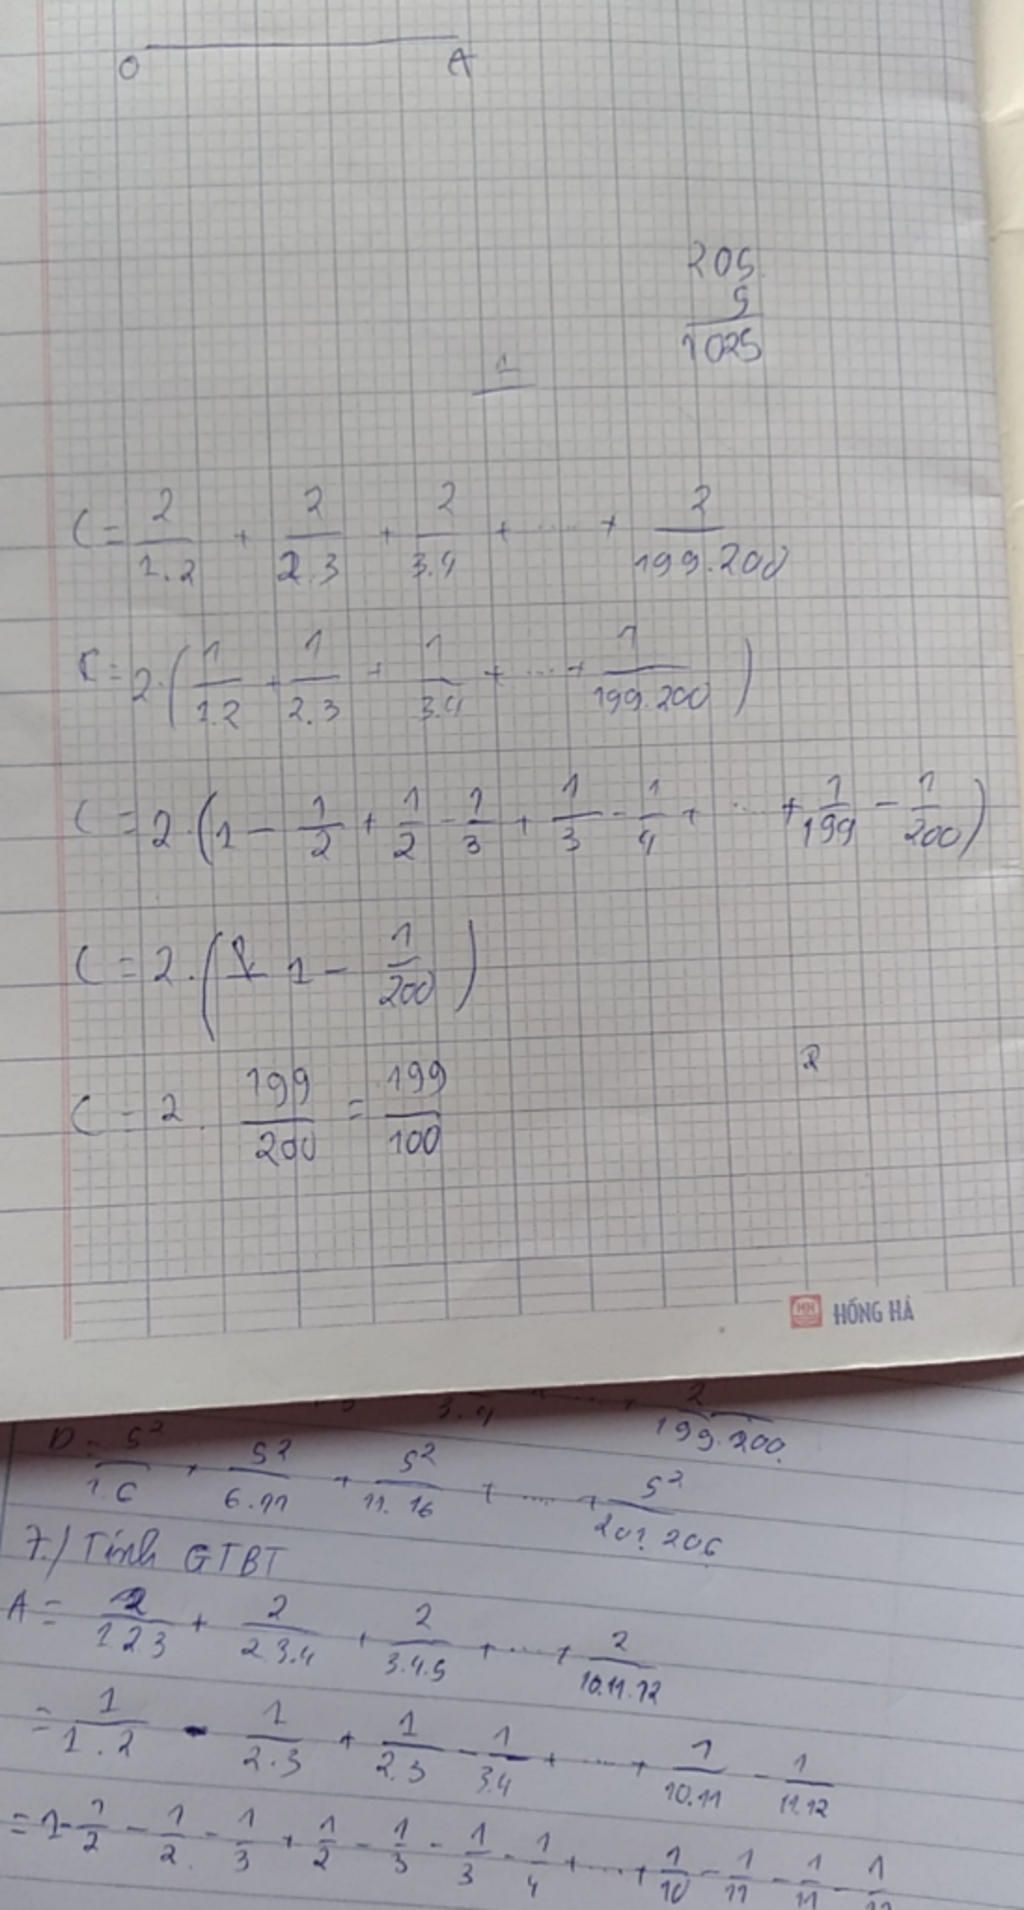 O A
205
5
1025
1
C = 2/1.2 + 2/2.3 + 2/3.4 + ..... + 2/199.200
C = 2.(1/1.2 + 1/2.3 + 1/3.4 + ... + 1/199.200)
C = 2.(1 - 1/2 + 1/2 - 1/3 + 1/3 - 1/4 + ... + 1/199 - 1/200)
C = 2.(1 - 1/200)
C = 2. 199/200 = 199/100
2
HH HỒNG HÀ
3.4 + 2/199.200
D = 5²/1.6 + 5²/6.11 + 5²/11.16 + .... + 5²/201.206
7./ Tính GTBT
A = 2/1.2.3 + 2/2.3.4 + 2/3.4.5 + .... + 2/10.11.12
= 1/1.2 - 1/2.3 + 1/2.3 - 1/3.4 + .... + 1/10.11 - 1/11.12
= 1 - 1/2 - 1/2 - 1/3 + 1/2 - 1/3 - 1/3 - 1/4 + .... + 1/10 - 1/11 - 1/11 - 1/12